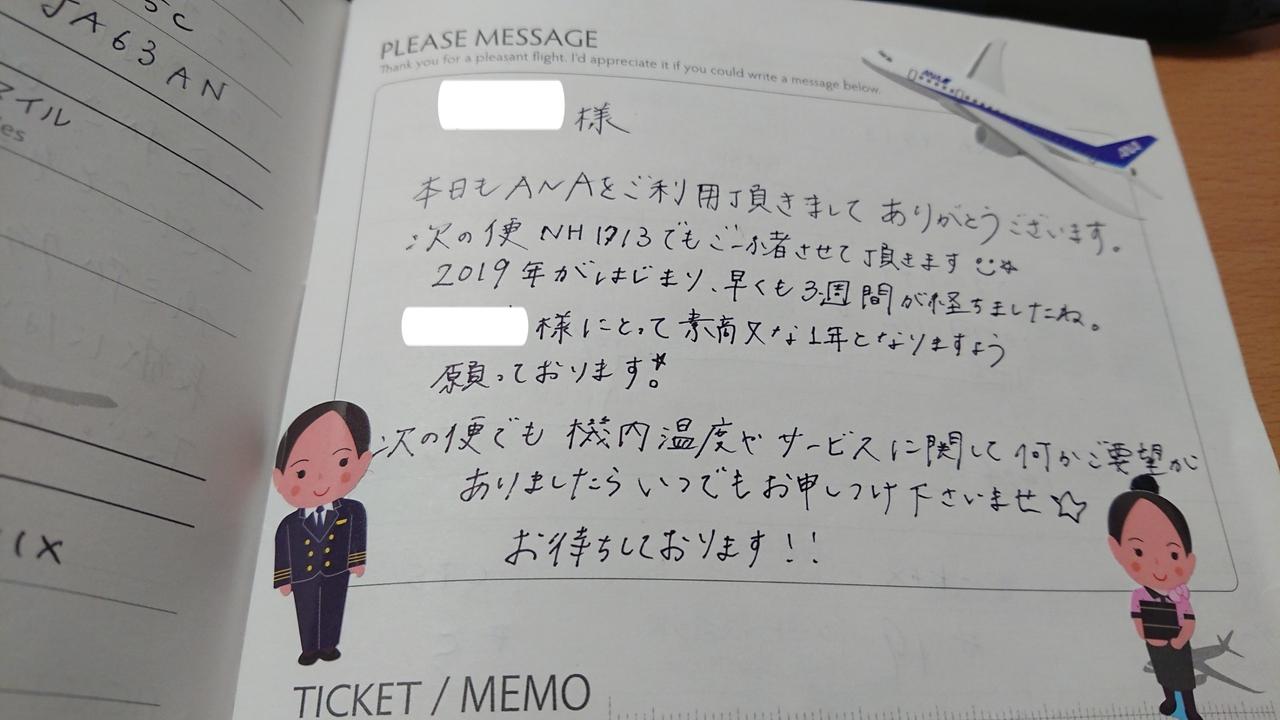 JA63AN
マイル
PLEASE MESSAGE
Thank you for a pleasant flight. I'd appreciate it if you could write a message below.
ANA
様
本日もANAをご利用頂きまして ありがとうございます。
次の便 でもご一緒させて頂きます
2019年がはじまり、早くも3週間が経ちましたね。
様にとって素敵な1年となりますよう
願っております!
次の便でも 機内温度や サービスに関して 何かご要望が
ありましたら いつでもお申しつけ下さいませ☆
お待ちしております!!
TICKET / MEMO